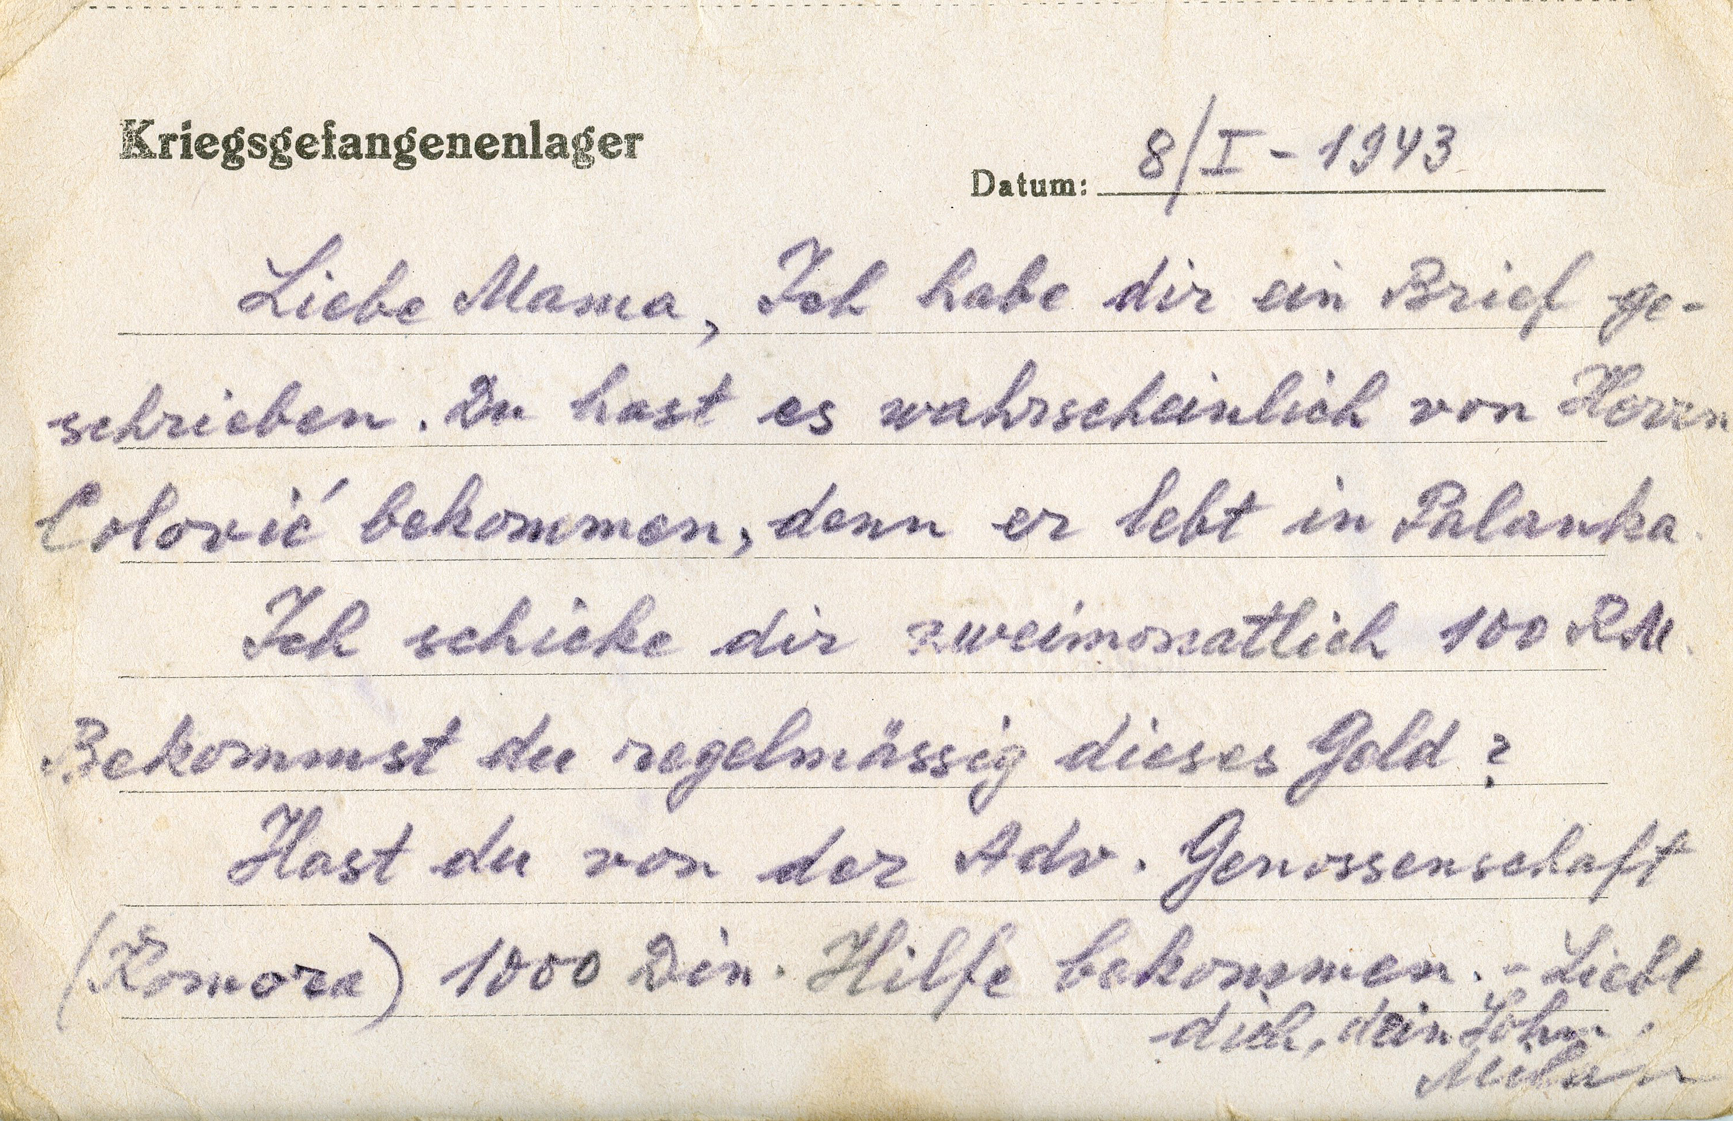 Kriegsgefangenenlager
Datum: 8/I - 1943
Liebe Mama, Ich habe dir ein Brief ge-
schrieben. Du hast es wahrscheinlich von Herrn
Colović bekommen, denn er lebt in Palanka.
Ich schicke dir zweimonatlich 100 RM.
Bekommst du regelmässig dieses Geld?
Hast du von der Adv. Genossenschaft
(Komora) 1000 Din. Hilfe bekommen. - Liebt
dich, dein Sohn.
Milan